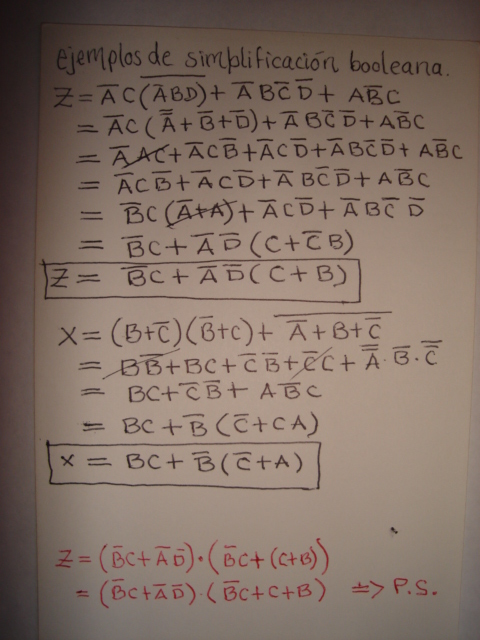 ejemplos de simplificación booleana.
Z = A̅C(\overline{A̅BD}) + A̅BC̅D̅ + AB̅C
= A̅C(A̿ + B̅ + D̅) + A̅BC̅D̅ + AB̅C
= A̅AC + A̅CB̅ + A̅CD̅ + A̅BC̅D̅ + AB̅C
= A̅CB̅ + A̅CD̅ + A̅BC̅D̅ + AB̅C
= B̅C(A̅+A) + A̅CD̅ + A̅BC̅D̅
= B̅C + A̅D̅(C + C̅B)
Z = B̅C + A̅D̅(C + B)
X = (B+C̅)(B̅+C) + \overline{A̅ + B + C̅}
= BB̅ + BC + C̅B̅ + C̅C + A̿·B̅·C̿
= BC + C̅B̅ + AB̅C
= BC + B̅(C̅ + CA)
X = BC + B̅(C̅ + A)
Z = (B̅C + A̅D̅)·(B̅C + (C+B))
= (B̅C + A̅D̅)·(B̅C + C + B) => P.S.